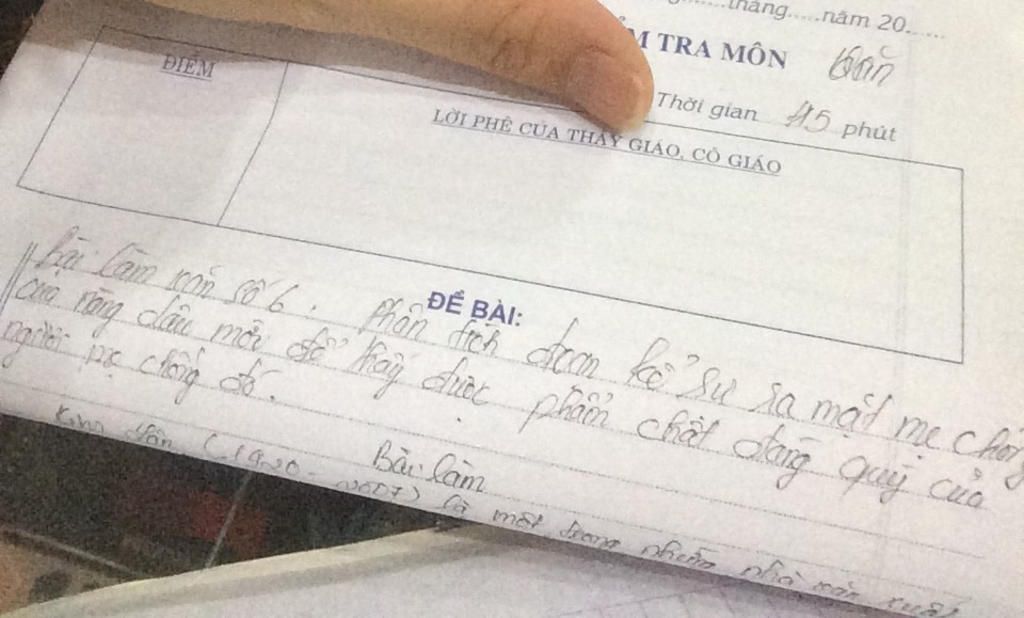 tháng.....năm 20......
TRA MÔN Văn
Thời gian 45 phút
ĐIỂM
LỜI PHÊ CỦA THẦY GIÁO, CÔ GIÁO
ĐỀ BÀI:
Bài làm văn số 6. Phân tích đoạn kể sự ra mặt mẹ chồng
của nàng dâu mới để thấy được phẩm chất đáng quý của
người mẹ chồng đó.
Bài làm
Kim Lân (1920-2007) là một trong những nhà văn xuất